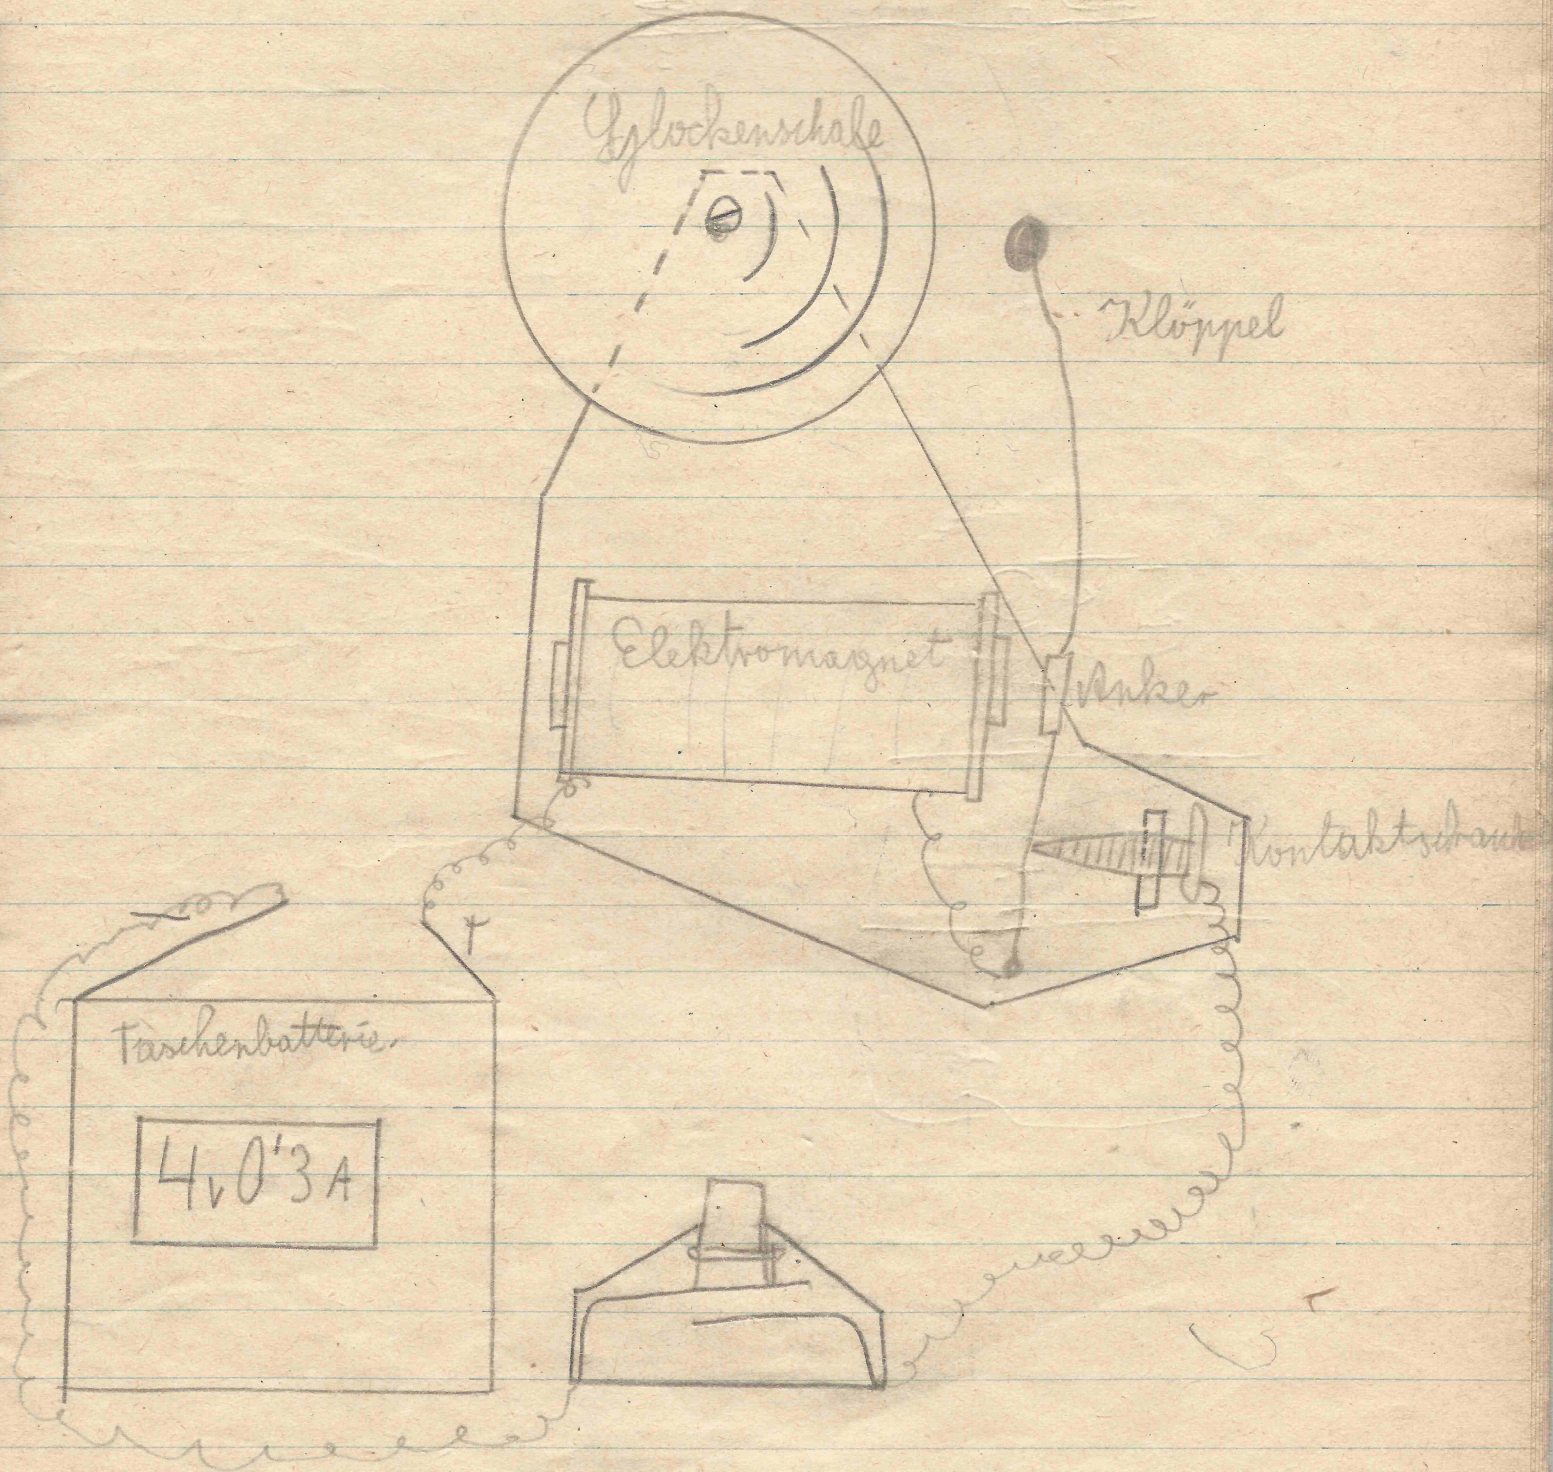 Glockenschale
Klöppel
Elektromagnet
Anker
Kontaktschraube
+
Taschenbatterie.
4v 0'3 A